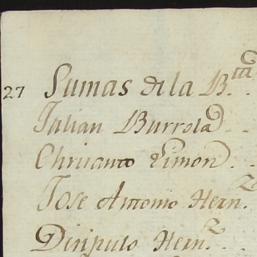 27 Sumas de la B.ta
Julian Burrola
Simon
Jose Antonio Hern.z
Hern.z